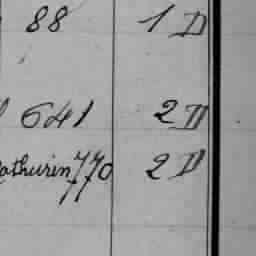 88 1 D
641 2 D
athurin 770 2 D